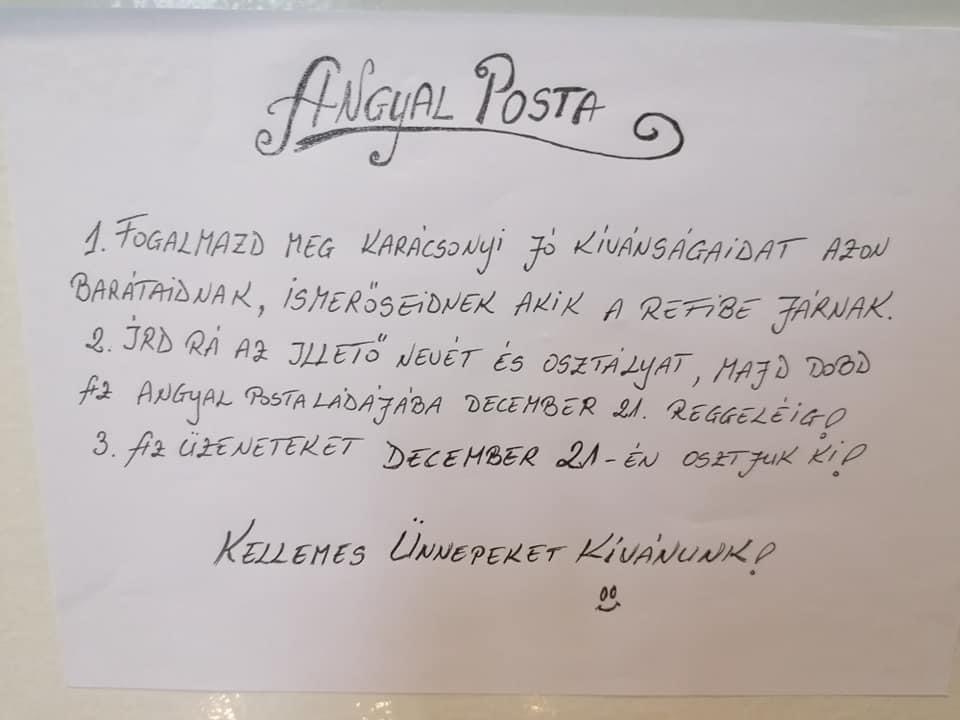 ANGYAL POSTA
1. FOGALMAZD MEG KARÁCSONYI JÓ KÍVÁNSÁGAIDAT AZON
BARÁTAIDNAK, ISMERŐSEIDNEK AKIK A REFIBE JÁRNAK.
2. ÍRD RÁ AZ ILLETŐ NEVÉT ÉS OSZTÁLYAT, MAJD DOBD
AZ ANGYAL POSTALÁDÁJÁBA DECEMBER 21. REGGELÉIG!
3. AZ ÜZENETEKET DECEMBER 21-ÉN OSZTJUK KI!
KELLEMES ÜNNEPEKET KÍVÁNUNK!